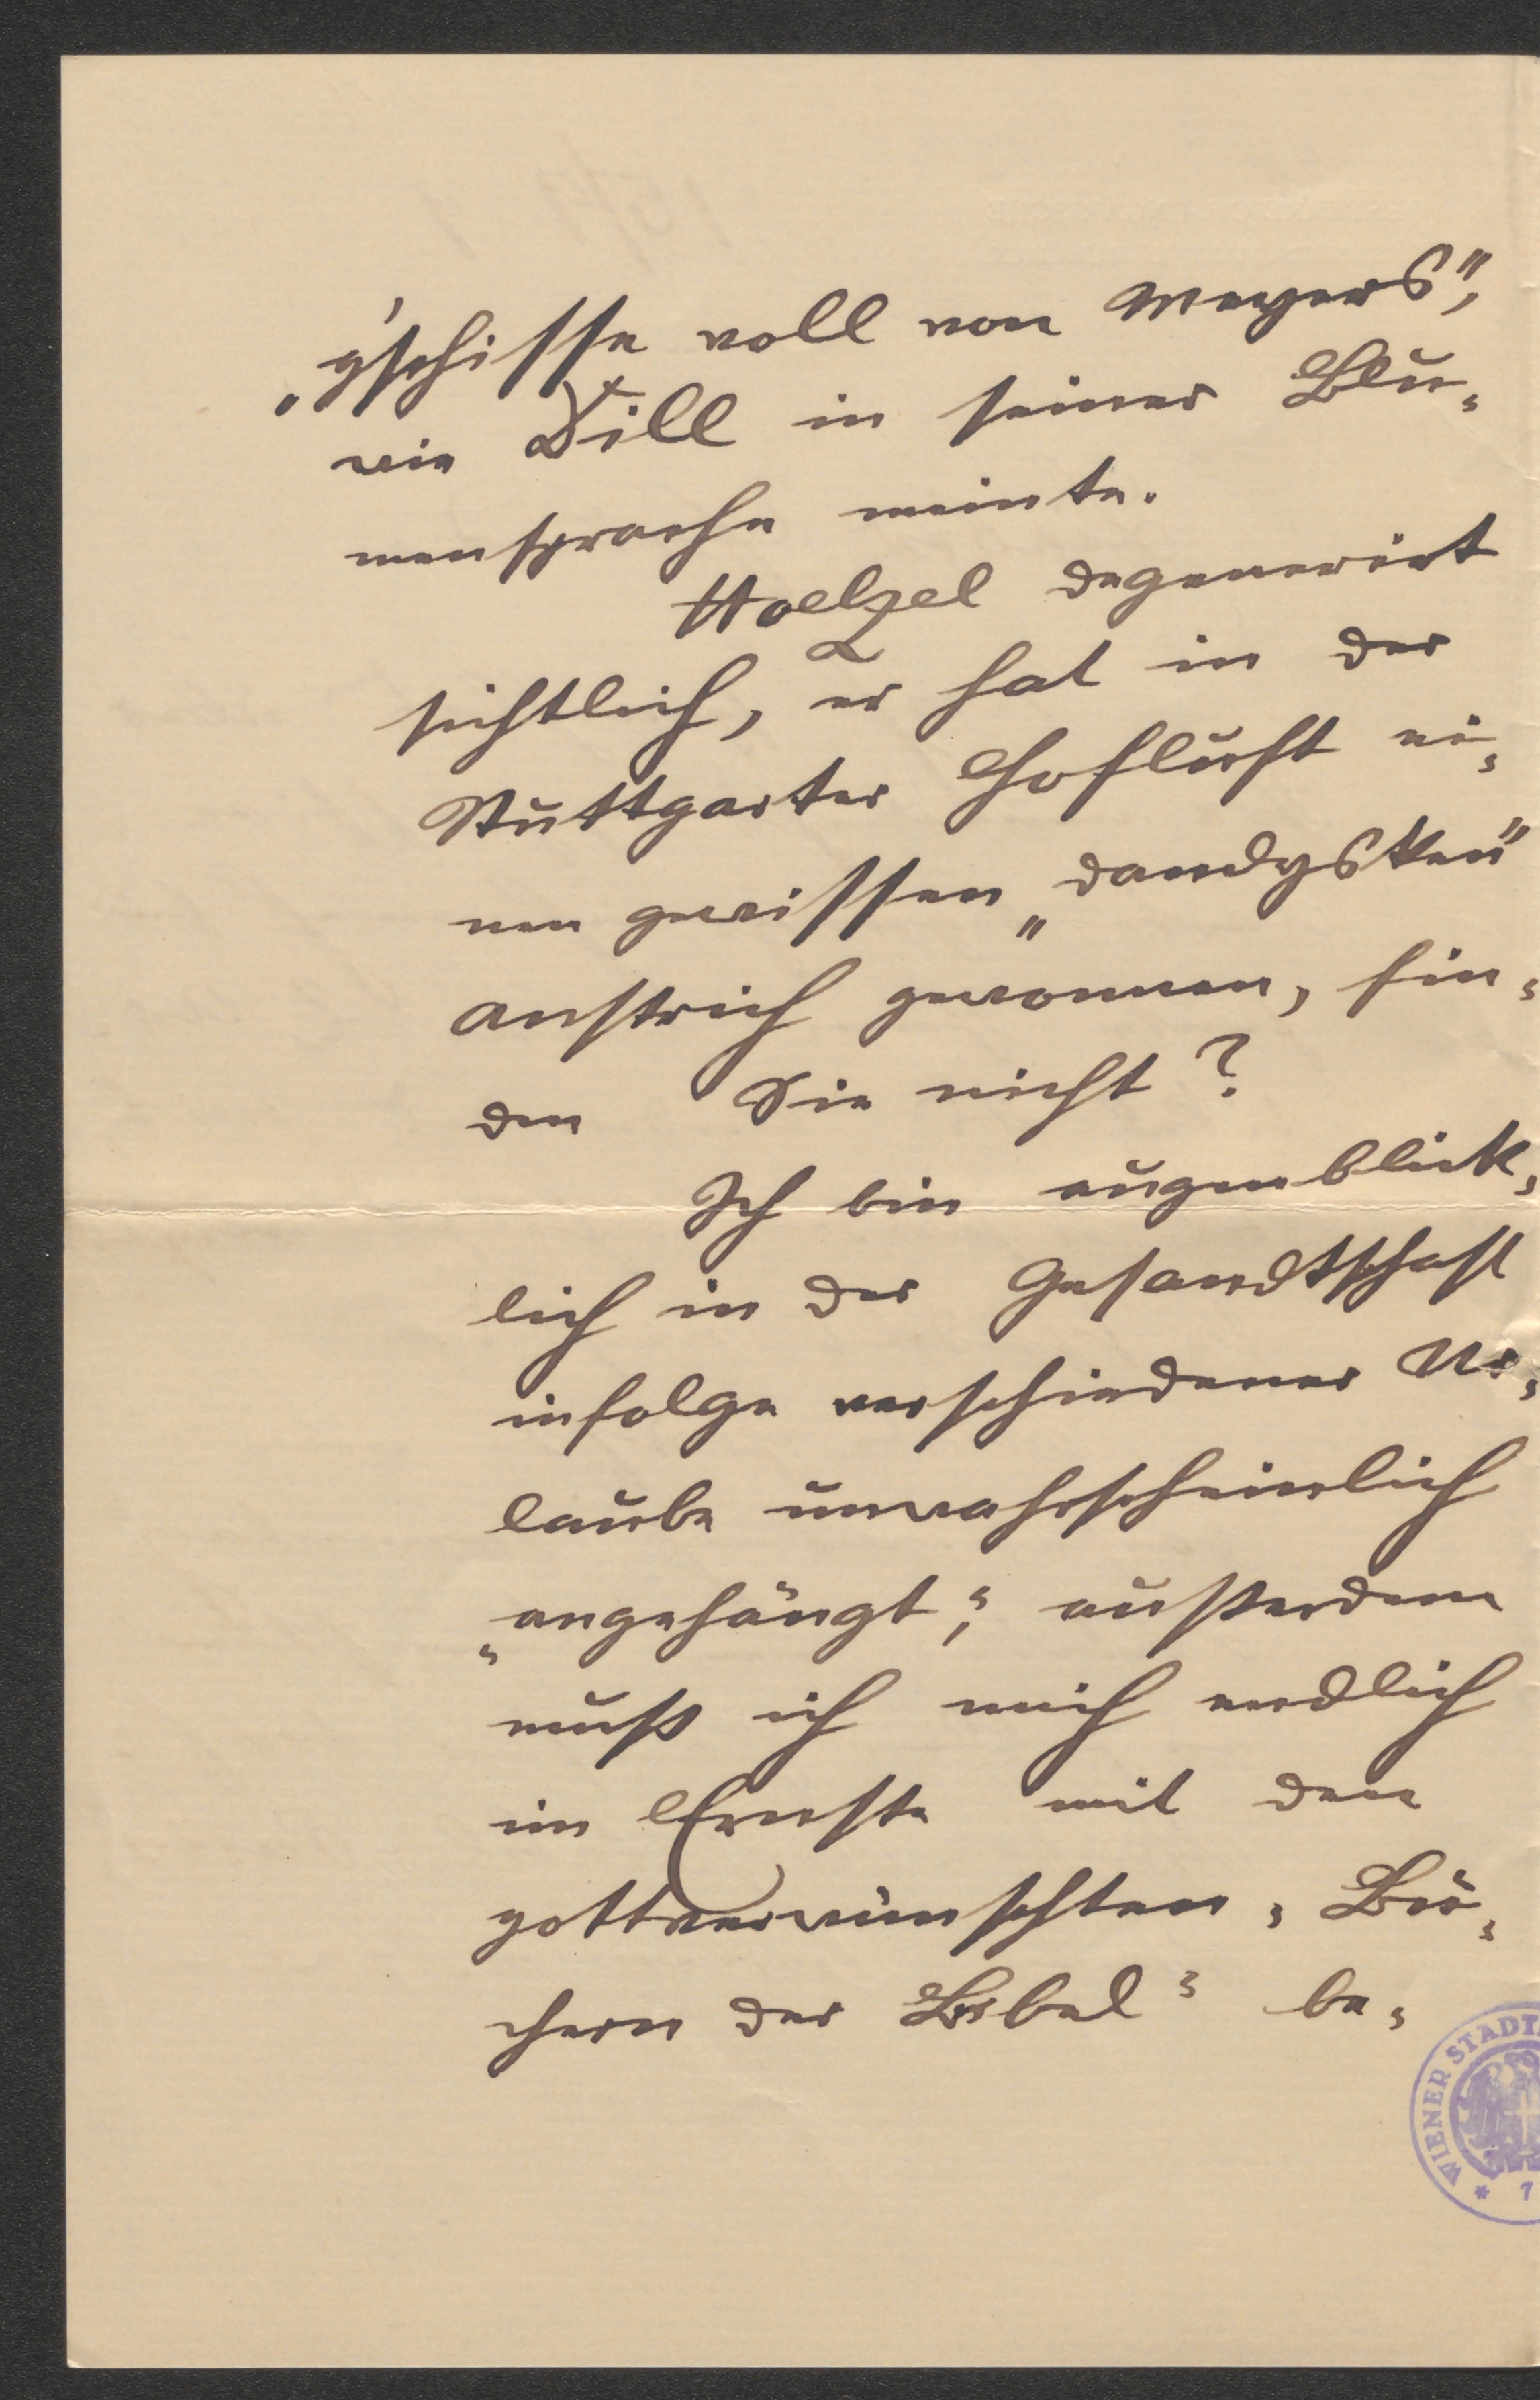 „g'schisse voll von Meyers",
wie Dill in seiner Blu-
mensprache meinte.
Hoelzel degenerirt
sichtlich, er hat in der
Stuttgarter Hofluft ei-
nen gewissen „dandysken"
Anstrich gewonnen, fin-
den Sie nicht?
Ich bin augenblick-
lich in der Gesandtschaft
infolge verschiedener Ur-
laube unwahrscheinlich
„angehängt"; außerdem
muß ich mich endlich
im Ernste mit den
gottverwünschten „Bü-
chern der Bibel" be-
WIENER STADT
* 7